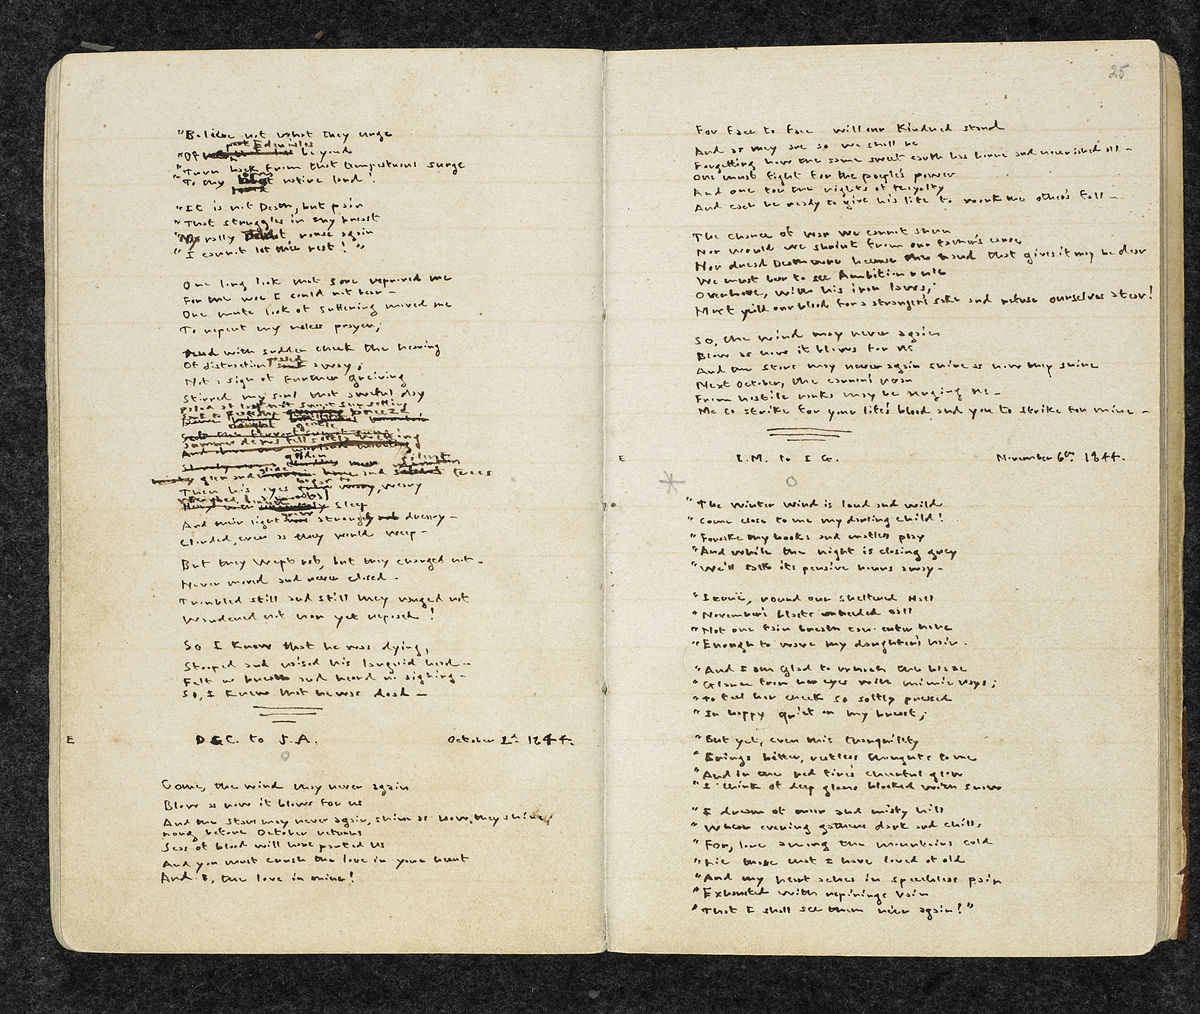 "Believe not what they urge
"Of Eden isles beyond
"Turn back from that tempestuous surge
"To thy own native land!
"It is not Death, but pain
"That struggles in thy breast
"Nay rally rouse again
"I cannot let thee rest!"
One long look that sore reproved me
For the woe I could not bear—
One mute look of suffering moved me
To repent my useless prayer;
And with sudden check the heaving
Of distraction passed away;
Not a sign of further grieving
Stirred my soul that awful day
Paled at last the sweet sun setting
Then his eyes weary
sleep
And their light grew strangely dreary—
Clouded, even as they would weep—
But they wept not, but they changed not—
Never moved and never closed—
Troubled still and still they ranged not
Wandered not nor yet reposed!
So I knew that he was dying,
Stooped and raised his languid head—
Felt no breath and heard no sighing—
So, I knew that he was dead—
E D.G.C. to J.A. October 2d. 1844.
Come, the wind may never again
Blow as now it blows for us
And the stars may never again, shine as now they shine;
Long before October returns
Seas of blood will have parted us
And you must crush the love in your heart
And I, the love in mine!
25
For face to face will our kindred stand
And as they are so we shall be
Forgetting how the same sweet earth has borne and nourished all—
One must fight for the people's power
And one for the rights of royalty
And each be ready to give his life to work the other's fall—
The chance of war we cannot shun
Nor would we shrink from our father's cause
Nor dread Death more because the hand that gives it may be dear
We must bear to see Ambition rule
Over love, with his iron laws;
Must yield our blood for a stranger's sake and refuse ourselves a tear!
So, the wind may never again
Blow as now it blows for us
And the stars may never again shine as now they shine
Next October, the cannon's roar
From hostile ranks may be urging us—
Me to strike for your life's blood and you to strike for mine—
E I.M. to I G. November 6th. 1844.
"The winter wind is loud and wild
"Come close to me my darling child!
"Forsake thy books and mateless play
"And while the night is closing grey
"We'll talk its pensive hours away—
"Iernë, round our sheltered Hall
"November's blasts unheeded call
"Not one faint breath can enter here
"Enough to wave my daughter's hair.
"And I am glad to watch the blaze
"Glance from her eyes with mimic rays;
"To feel her cheek so softly pressed
"In happy quiet on my breast;
"But yet, even this tranquillity
"Brings bitter, restless thoughts to me
"And in the red fire's cheerful glow
"I think of deep glens blocked with snow
"I dream of moor and misty hill
"Where evening gathers dark and chill,
"For, lone among the mountains cold
"Lie those that I have loved of old
"And my heart aches in speechless pain
"Exhausted with repinings vain
"That I shall see them ne'er again!"